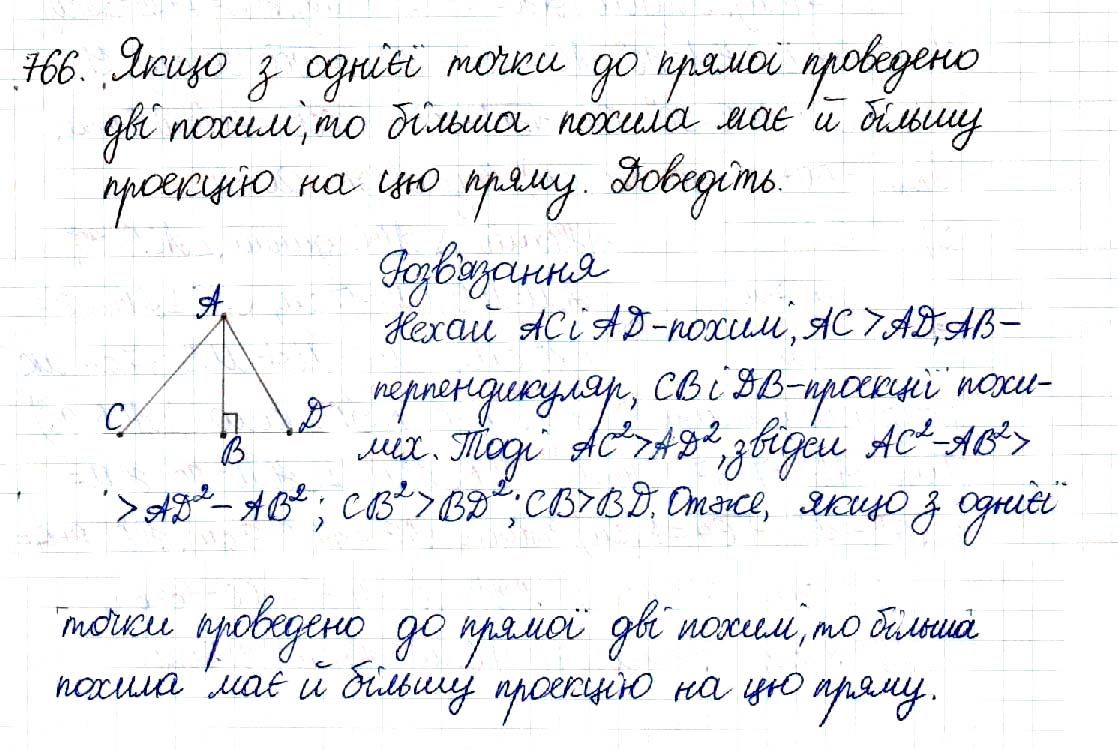 766. Якщо з однієї точки до прямої проведено
дві похилі, то більша похила має й більшу
проекцію на цю пряму. Доведіть.
Розв'язання
A
Нехай AC і AD - похилі, AC > AD, AB -
перпендикуляр, CB і DB - проекції похи-
C
D
B
лих. Тоді AC² > AD², звідси AC² - AB² >
> AD² - AB²; CB² > BD²; CB > BD. Отже, якщо з однієї
точки проведено до прямої дві похилі, то більша
похила має й більшу проекцію на цю пряму.